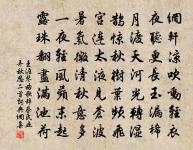 網軒涼吹動輕衣
夜聽更長玉漏稀
月渡天河光轉濕
鵲驚秋樹葉頻飛
宮連太液見滄波
暑氣微消秋意多
一夜輕風蘋末起
露珠翻盡滿池荷
秋思二首詞典網